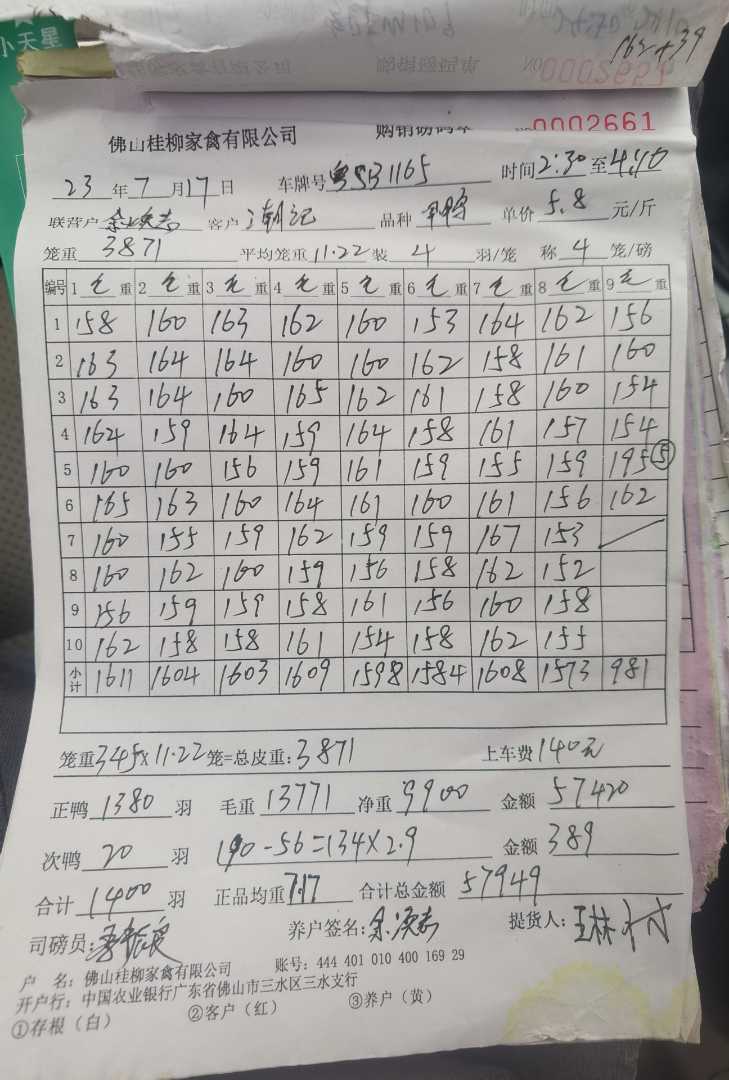 小天星
162+39
佛山桂柳家禽有限公司 购销磅码单 №0002661
23 年 7 月 17 日 车牌号 粤SB1165 时间 2:30 至 4:10
联营户 客户 潮记 品种 单价 5.8 元/斤
笼重 3871 平均笼重 11.22 装 4 羽/笼 称 4 笼/磅
编号 1 毛 重 2 毛 重 3 毛 重 4 毛 重 5 毛 重 6 毛 重 7 毛 重 8 毛 重 9 毛 重
1 158 160 163 162 160 153 164 162 156
2 163 164 164 160 160 162 158 161 160
3 163 164 160 165 162 161 158 160 154
4 164 159 164 159 164 158 161 157 154
5 160 160 156 159 161 159 155 159 195 ⑤
6 165 163 160 164 161 160 161 156 162
7 160 155 159 162 159 159 167 153
8 160 162 160 159 156 158 162 152
9 156 159 159 158 161 156 160 158
10 162 158 158 161 154 158 162 155
小计 1611 1604 1603 1609 1598 1584 1608 1573 981
笼重 345×11.22 笼=总皮重: 3871 上车费 140元
正鸭 1380 羽 毛重 13771 净重 9900 金额 57420
次鸭 20 羽 190-56=134×2.9 金额 389
合计 1400 羽 正品均重 7.17 合计总金额 57949
司磅员: 养户签名: 提货人: 王林
户 名: 佛山桂柳家禽有限公司 账号: 444 401 010 400 169 29
开户行: 中国农业银行广东省佛山市三水区三水支行
①存根（白） ②客户（红） ③养户（黄）